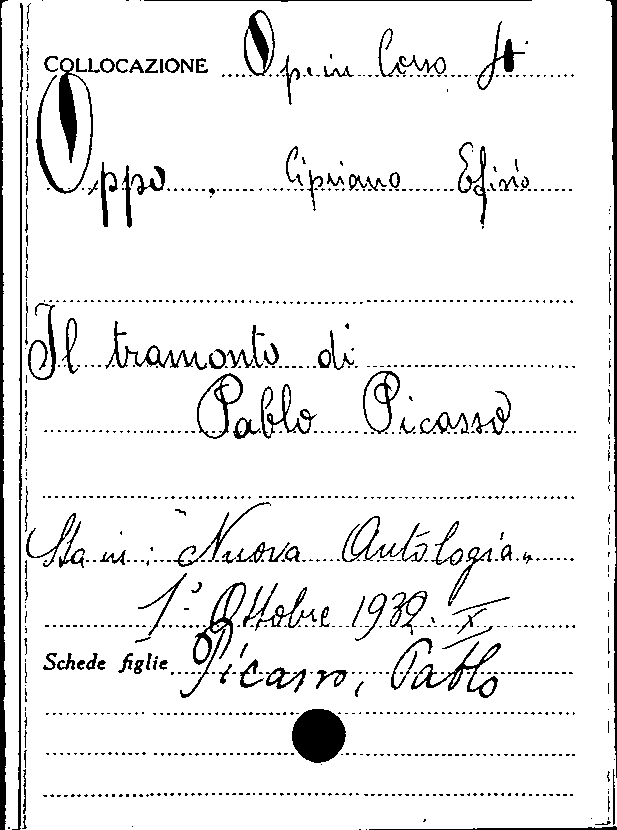 COLLOCAZIONE Op. in Corso St
Oppo, Cipriano Efisio
Il tramonto di
Pablo Picasso
Sta in: "Nuova Antologia"
1° Ottobre 1932. X
Schede figlie Picasso, Pablo